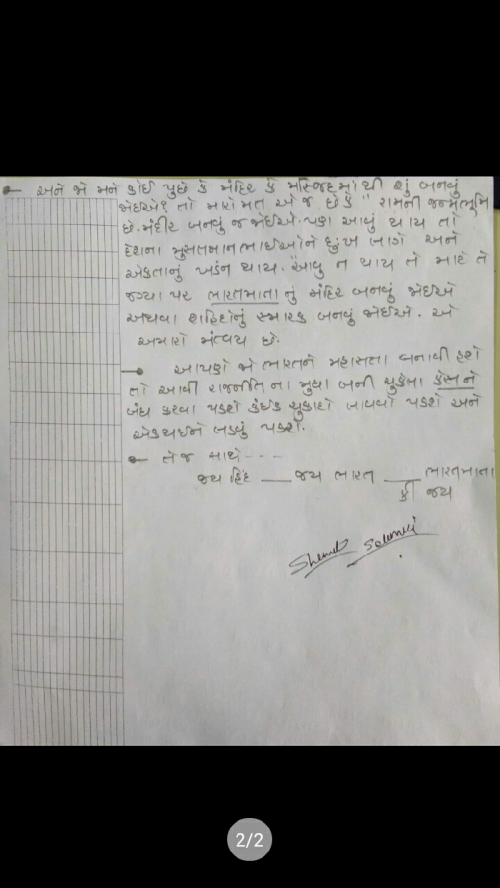 અને જો મને કોઈ પુછે કે મંદિર કે મસ્જિદમાંથી શું બનવું
જોઈએ? તો મારો મત એ જ છે કે " રામની જન્મભૂમિ
છે. મંદીર બનવું જ જોઈએ. પણ આવું થાય તો
દેશના મુસલમાન ભાઈઓને દુઃખ લાગે અને
એકતાનું ખંડન થાય. "આવુ ન થાય તે માટે તે
જગ્યા પર ભારતમાતા નું મંદિર બનવું જોઈએ
અથવા શહિદોનું સ્મારક બનવું જોઈએ. એ
અમારો મંતવ્ય છે.
આપણે જો ભારતને મહાસતા બનાવી હશે
તો આવી રાજનીતિ ના મુદ્દા બની ચુકેલા કેસ ને
બંધ કરવા પડશે કંઈક ચુકાદો લાવવો પડશે અને
એકથઈને લડવું પડશે.
તેજ સાથે - - -
જય હિંદ — જય ભારત — ભારતમાતા
કી જય
2/2